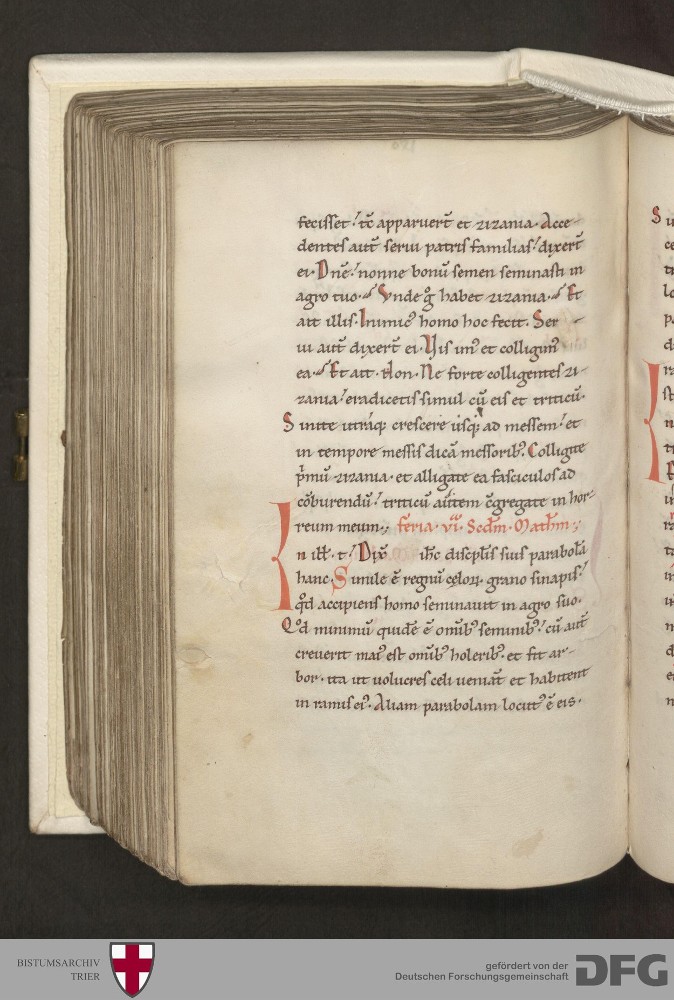 fecisset. tc̄ apparuer̄t et zizania. Acce
dentes aut̄ serui patris familias. dixer̄t
ei. Dn̄e. nonne bonū semen seminasti in
agro tuo. Vnde gͦ habet zizania. Et
ait illis. Inimicꝰ homo hoc fecit. Ser
ui aut̄ dixer̄t ei. Vis imꝰ et colligimꝰ
ea. Et ait. Non. Ne forte colligentes zi
zania. eradicetis simul cū eis et triticū.
Sinite utraq; crescere usq; ad messem. et
in tempore messis dicā messorib;. Colligite
p̄mū zizania. et alligate ea fasciculos ad
cōburendū. triticū autem cḡregate in hor
reum meum. feria. vi. Scdm. Mathm.
In ill. t. Dix̄ ihc discipl̄is suis parabolā
hanc. Simile ē regnū cęloꝝ grano sinapis.
qd̄ accipiens homo seminauit in agro suo.
Qd̄ minimū quidē ē omib; seminib;. cū aut̄
creuerit maiꝰ est omib; holerib;. et fit ar
bor. ita ut uolucres celi ueniat̄ et habitent
in ramis eiꝰ. Aliam parabolam locutꝰ ē eis.
BISTUMSARCHIV
TRIER
gefördert von der
Deutschen Forschungsgemeinschaft
DFG